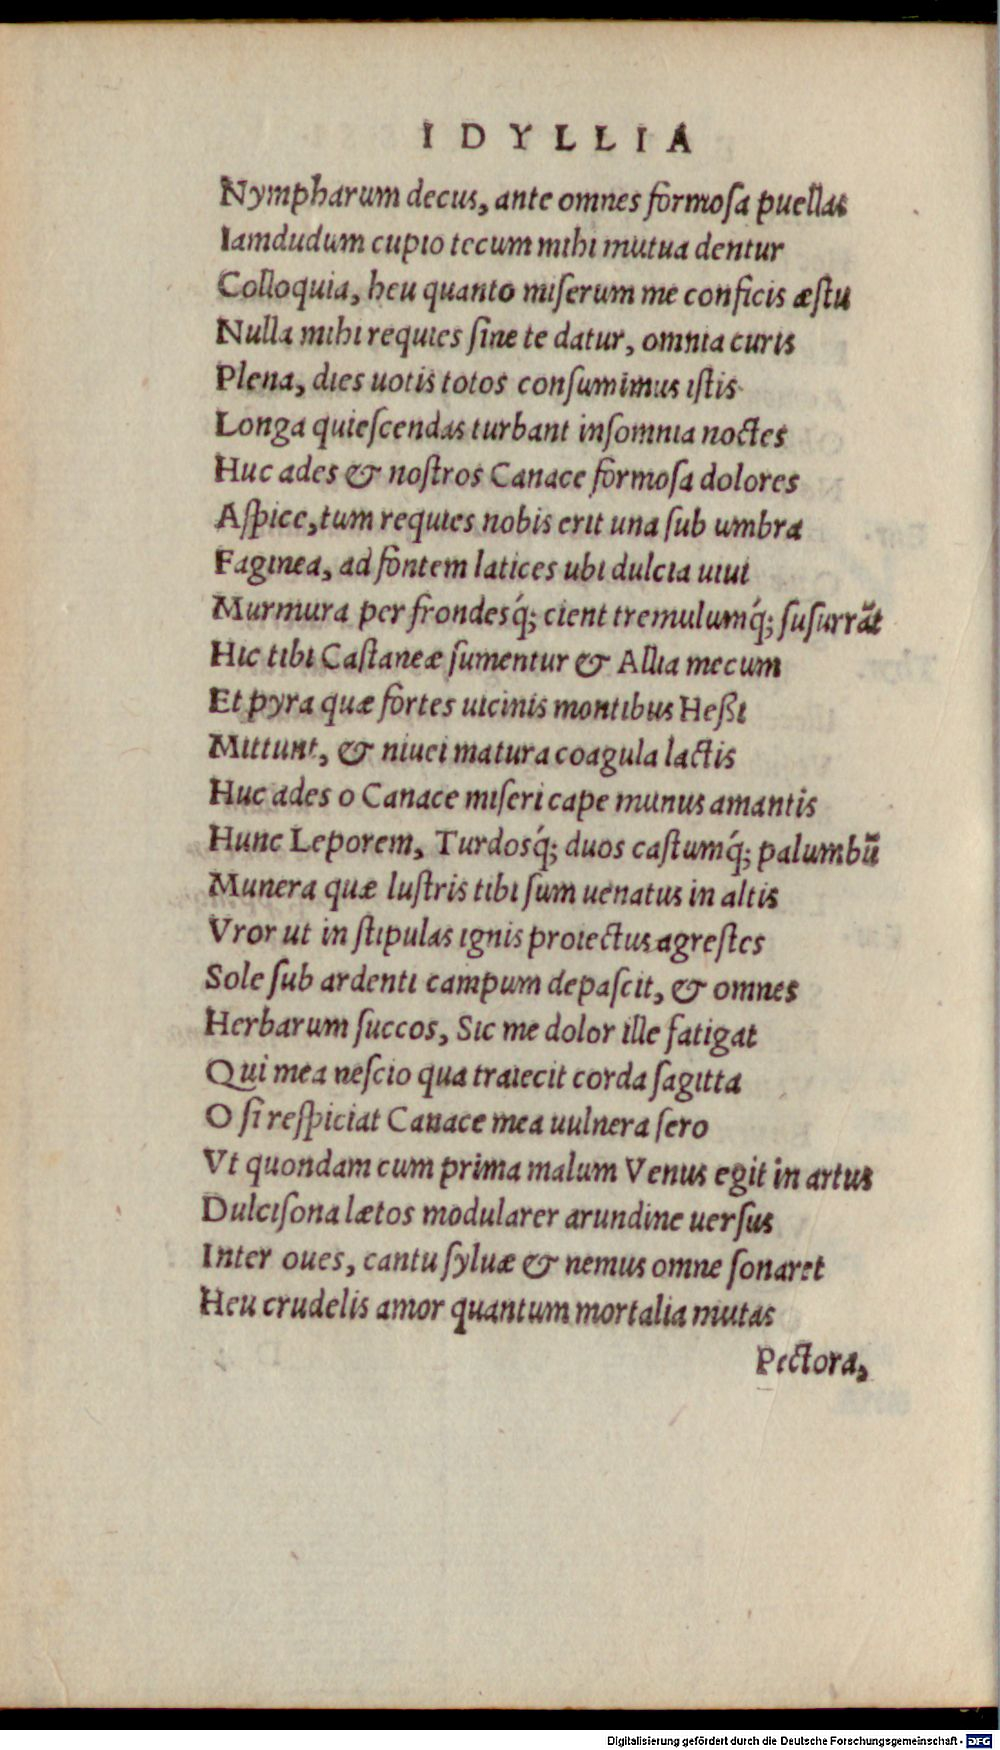 IDYLLIA
Nympharum decus, ante omnes formoſa puellas
Iamdudum cupio tecum mihi mutua dentur
Colloquia, heu quanto miſerum me conficis æſtu
Nulla mihi requies ſine te datur, omnia curis
Plena, dies uotis totos conſumimus iſtis
Longa quieſcendas turbant inſomnia noctes
Huc ades & noſtros Canace formoſa dolores
Aſpice, tum requies nobis erit una ſub umbra
Faginea, ad fontem latices ubi dulcia uiui
Murmura per frondesq́; cient tremulumq́; ſuſurrãt
Hic tibi Caſtaneæ ſumentur & Allia mecum
Et pyra quæ fortes uicinis montibus Heßi
Mittunt, & niuei matura coagula lactis
Huc ades o Canace miſeri cape munus amantis
Hunc Leporem, Turdosq́; duos caſtumq́; palumbũ
Munera quæ luſtris tibi ſum uenatus in altis
Vror ut in ſtipulas ignis proiectus agreſtes
Sole ſub ardenti campum depaſcit, & omnes
Herbarum ſuccos, Sic me dolor ille fatigat
Qui mea neſcio qua traiecit corda ſagitta
O ſi reſpiciat Canace mea uulnera ſero
Vt quondam cum prima malum Venus egit in artus
Dulciſona lætos modularer arundine uerſus
Inter oues, cantu ſyluæ & nemus omne ſonaret
Heu crudelis amor quantum mortalia mutas
Pectora,
Digitalisierung gefördert durch die Deutsche Forschungsgemeinschaft - DFG